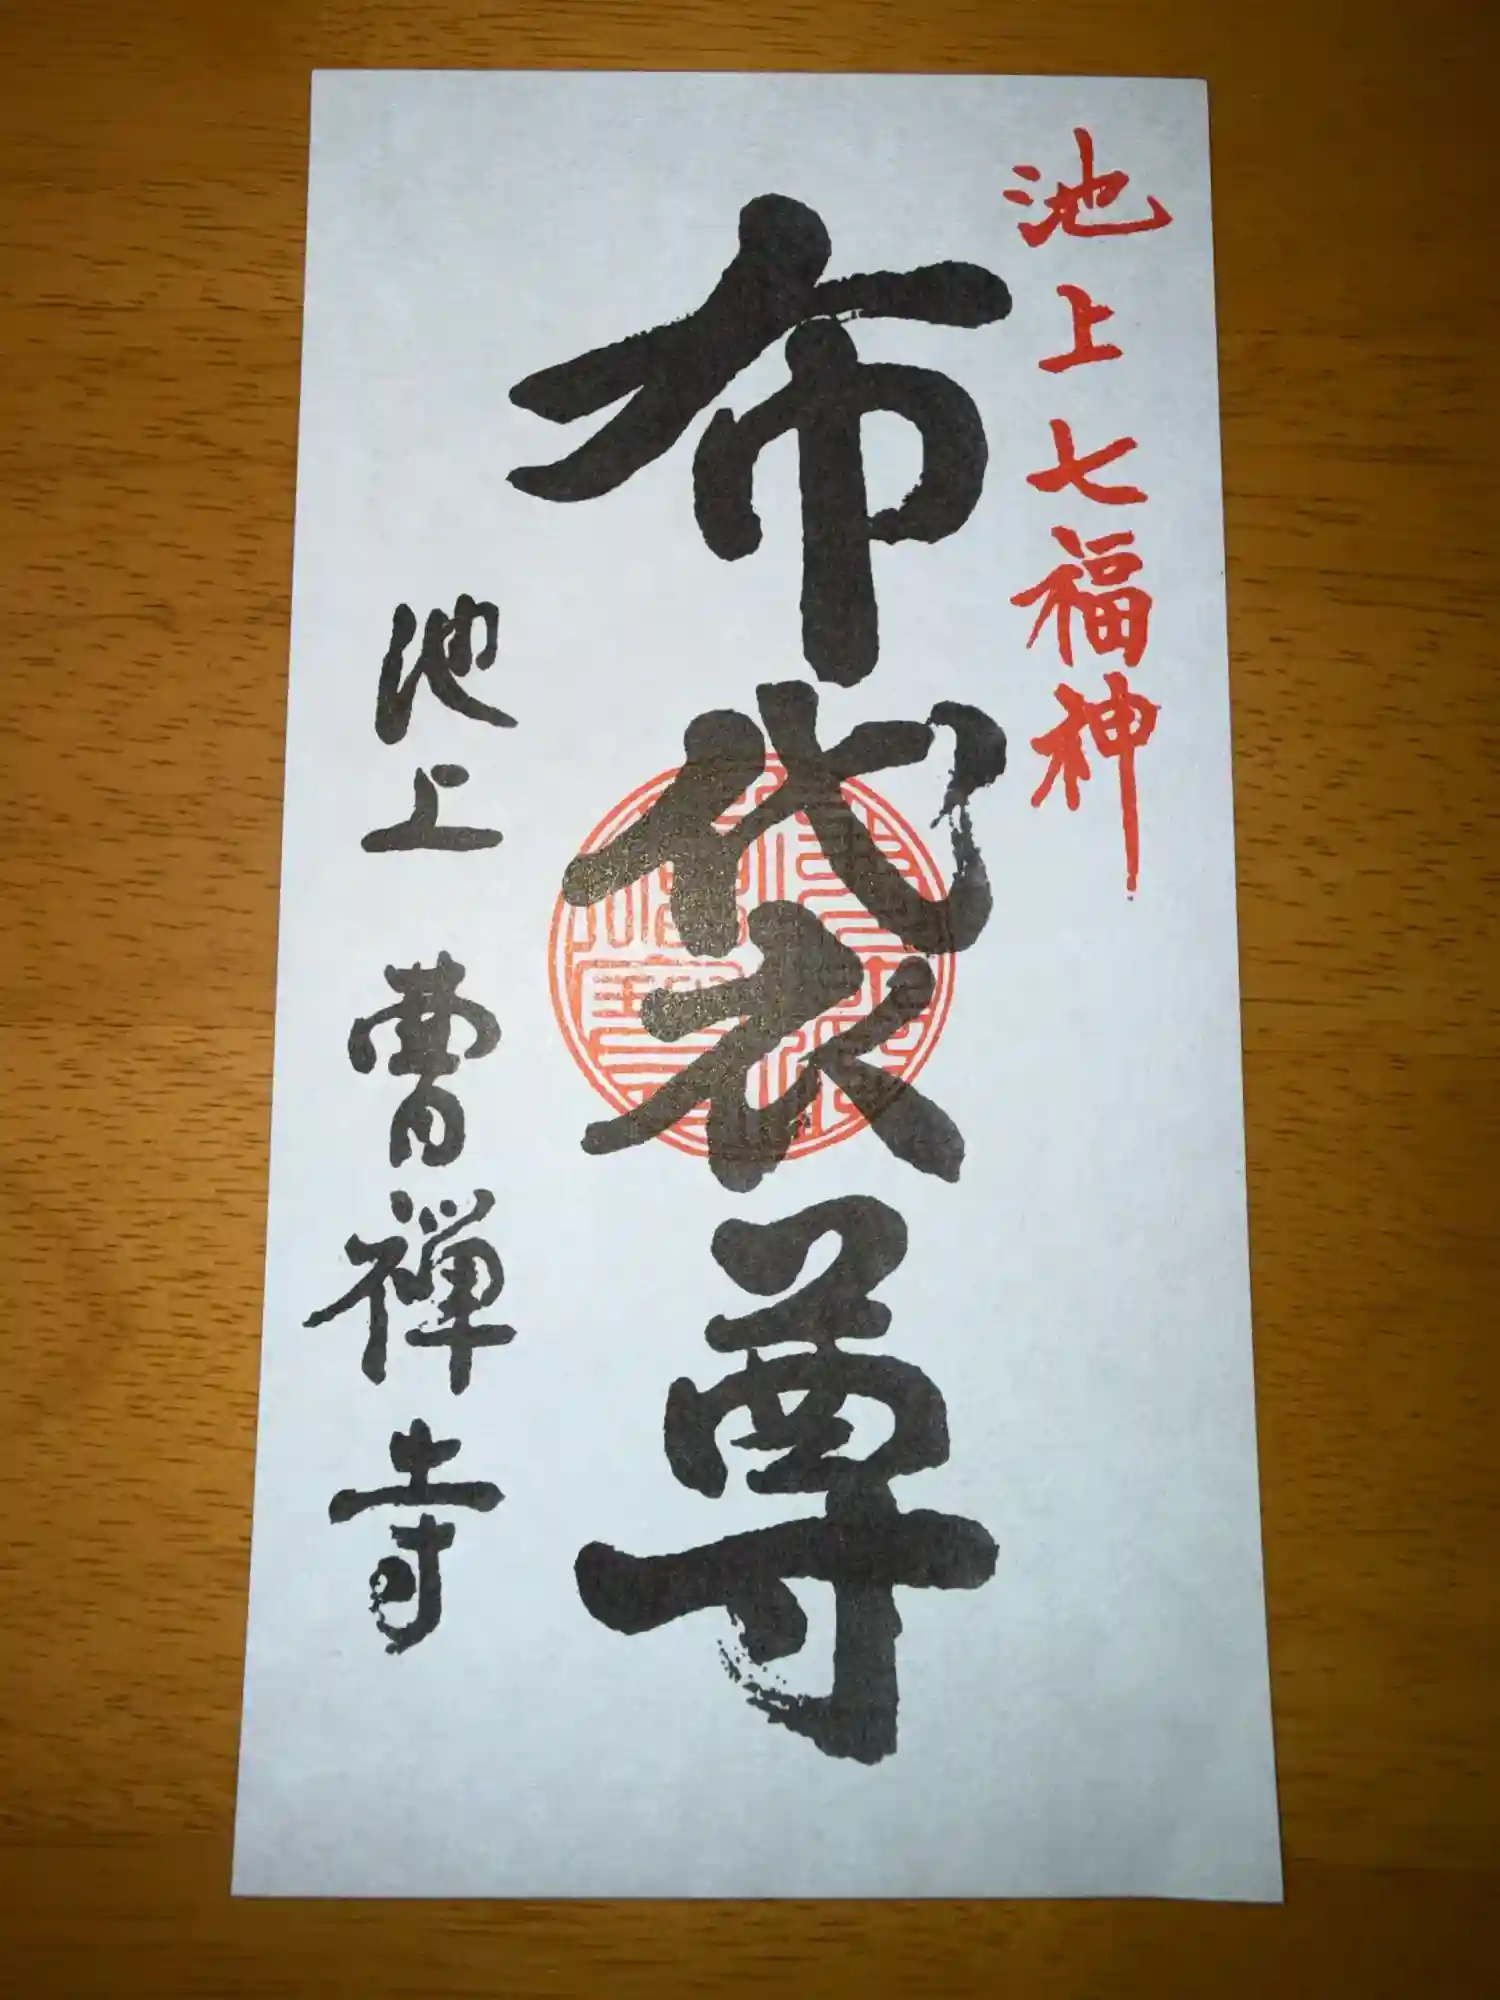 池上七福神
布袋尊
池上 曹禅寺